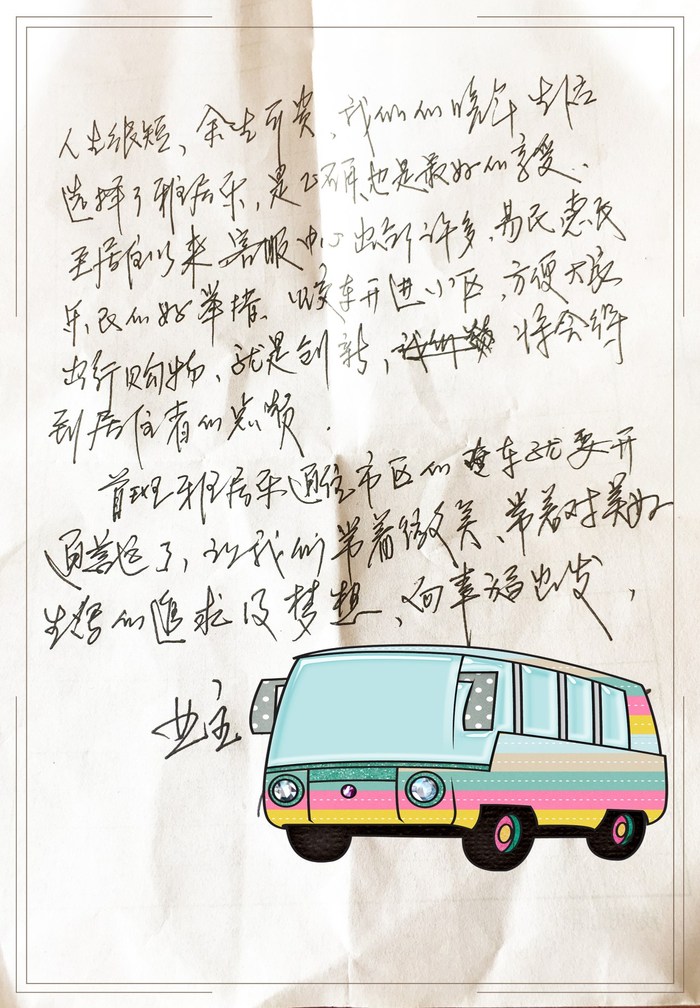 人生很短、余生可贵，我们的晚年生活
选择了雅居乐，是正确也是最好的享受、
至居住以来客服中心出台许多、易民惠民
乐民的好举措、以及车开进小区，方便大家
出行购物，就是创新，将会得
到居住者的点赞．
首班雅居乐通往市区的车就要开
通营运了，让我们带着微美、带着对美好
生活的追求及梦想，向幸福出发，
业主